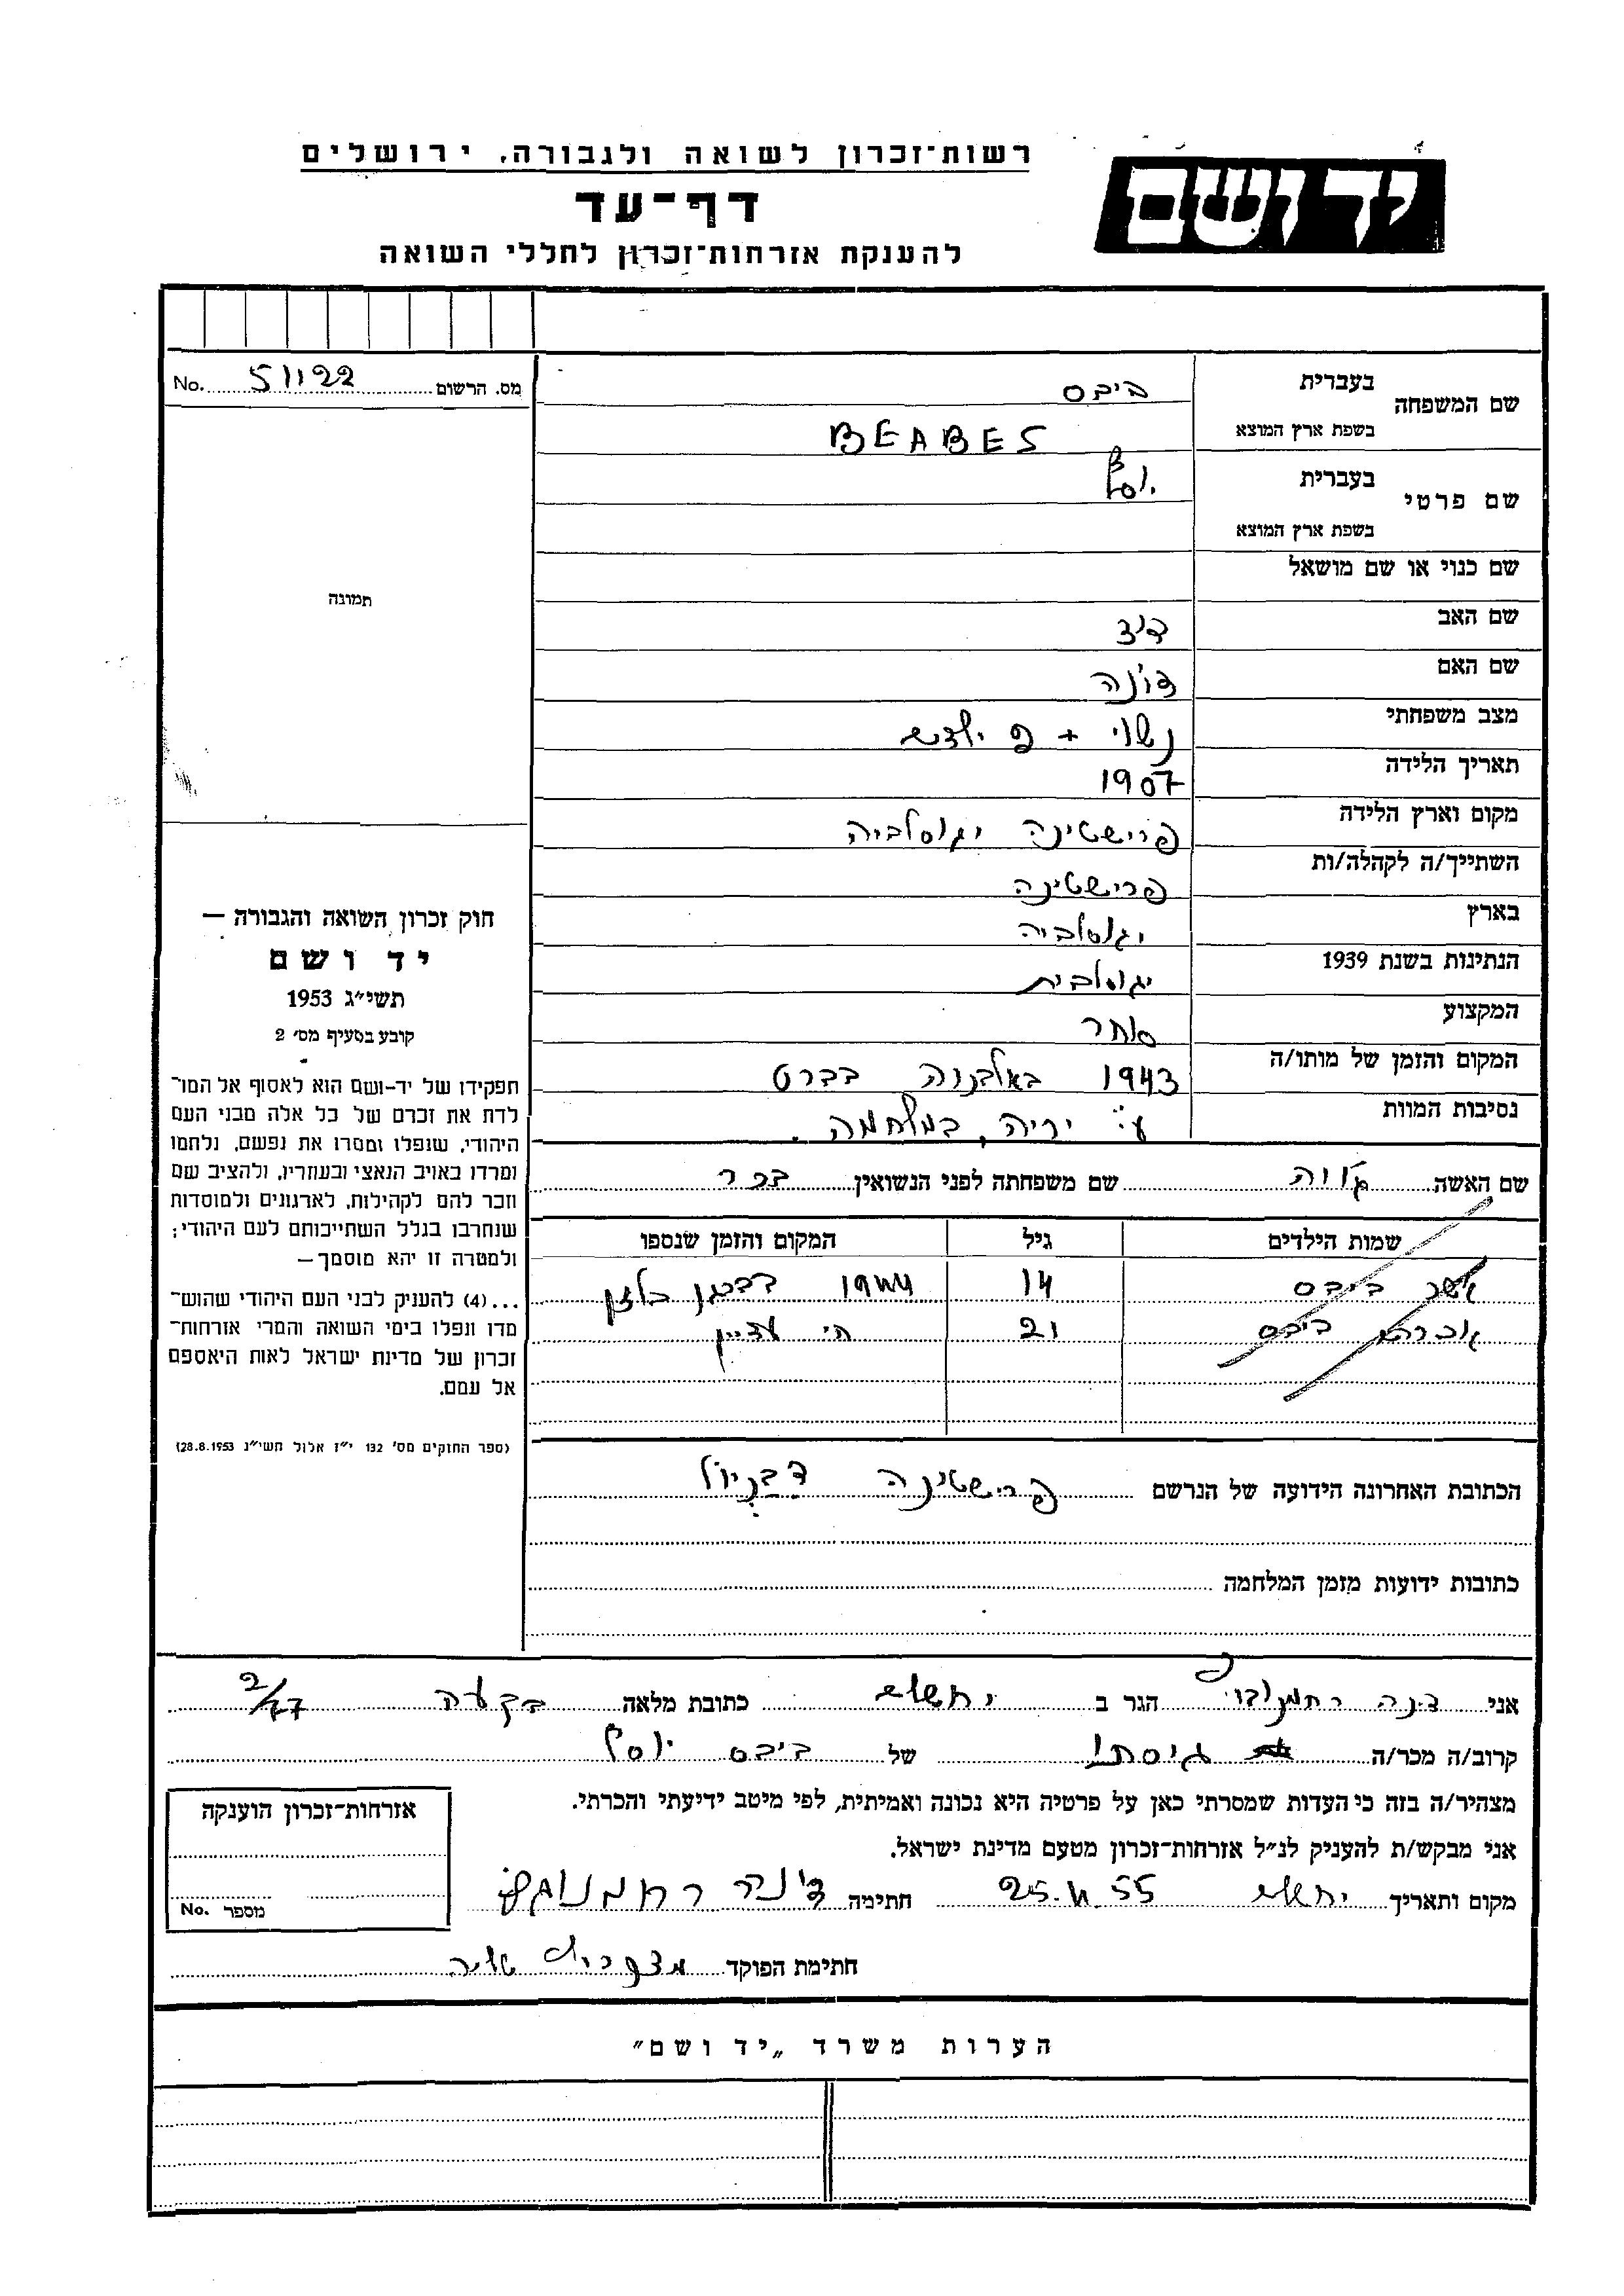 רשות־זכרון לשואה ולגבורה, ירושלים
יד ושם
דף־עד
להענקת אזרחות־זכרון לחללי השואה
מס. הרשום 51122 No.
תמונה
שם המשפחה בעברית ביבס
בשפת ארץ המוצא BEABES
שם פרטי בעברית יוסף
בשפת ארץ המוצא
שם כנוי או שם מושאל
שם האב
שם האם
מצב משפחתי נשוי + 2 ילדים
תאריך הלידה 1907
מקום וארץ הלידה פרישטינה יגוסלביה
השתייך/ה לקהלה/ות פרישטינה
בארץ יגוסלביה
הנתינות בשנת 1939 יגוסלבית
המקצוע סוחר
המקום והזמן של מותו/ה 1943 באלבניה בברט
נסיבות המוות ע"י יריה, במלחמה.
שם האשה שם משפחתה לפני הנשואין בכר
שמות הילדים גיל המקום והזמן שנספו
אשר ביבס 14 1944 בברגן בלזן
אברהם ביבס 21 חי עדיין
הכתובת האחרונה הידועה של הנרשם פרישטינה
כתובות ידועות מזמן המלחמה
חוק זכרון השואה והגבורה —
יד ושם
תשי״ג 1953
קובע בסעיף מס׳ 2
תפקידו של יד-ושם הוא לאסוף אל המו־
לדת את זכרם של כל אלה מבני העם
היהודי, שנפלו ומסרו את נפשם, נלחמו
ומרדו באויב הנאצי ובעוזריו, ולהציב שם
וזכר להם לקהילות, לארגונים ולמוסדות
שנחרבו בגלל השתייכותם לעם היהודי;
ולמטרה זו יהא מוסמך—
...(4) להעניק לבני העם היהודי שהוש־
מדו ונפלו בימי השואה והמרי אזרחות־
זכרון של מדינת ישראל לאות היאספם
אל עמם.
(ספר החוקים מס׳ 132 י״ז אלול תשי״ג 28.8.1953)
אני דינה רחמנוביץ הגר ב ירושלים כתובת מלאה בקעה
קרוב/ה מכר/ה גיסתו של ביבס יוסף
מצהיר/ה בזה כי העדות שמסרתי כאן על פרטיה היא נכונה ואמיתית, לפי מיטב ידיעתי והכרתי.
אני מבקש/ת להעניק לנ״ל אזרחות־זכרון מטעם מדינת ישראל.
מקום ותאריך ירושלים חתימה דינה רחמנוביץ
חתימת הפוקד
אזרחות־זכרון הוענקה
מספר No.
הערות משרד „יד ושם״